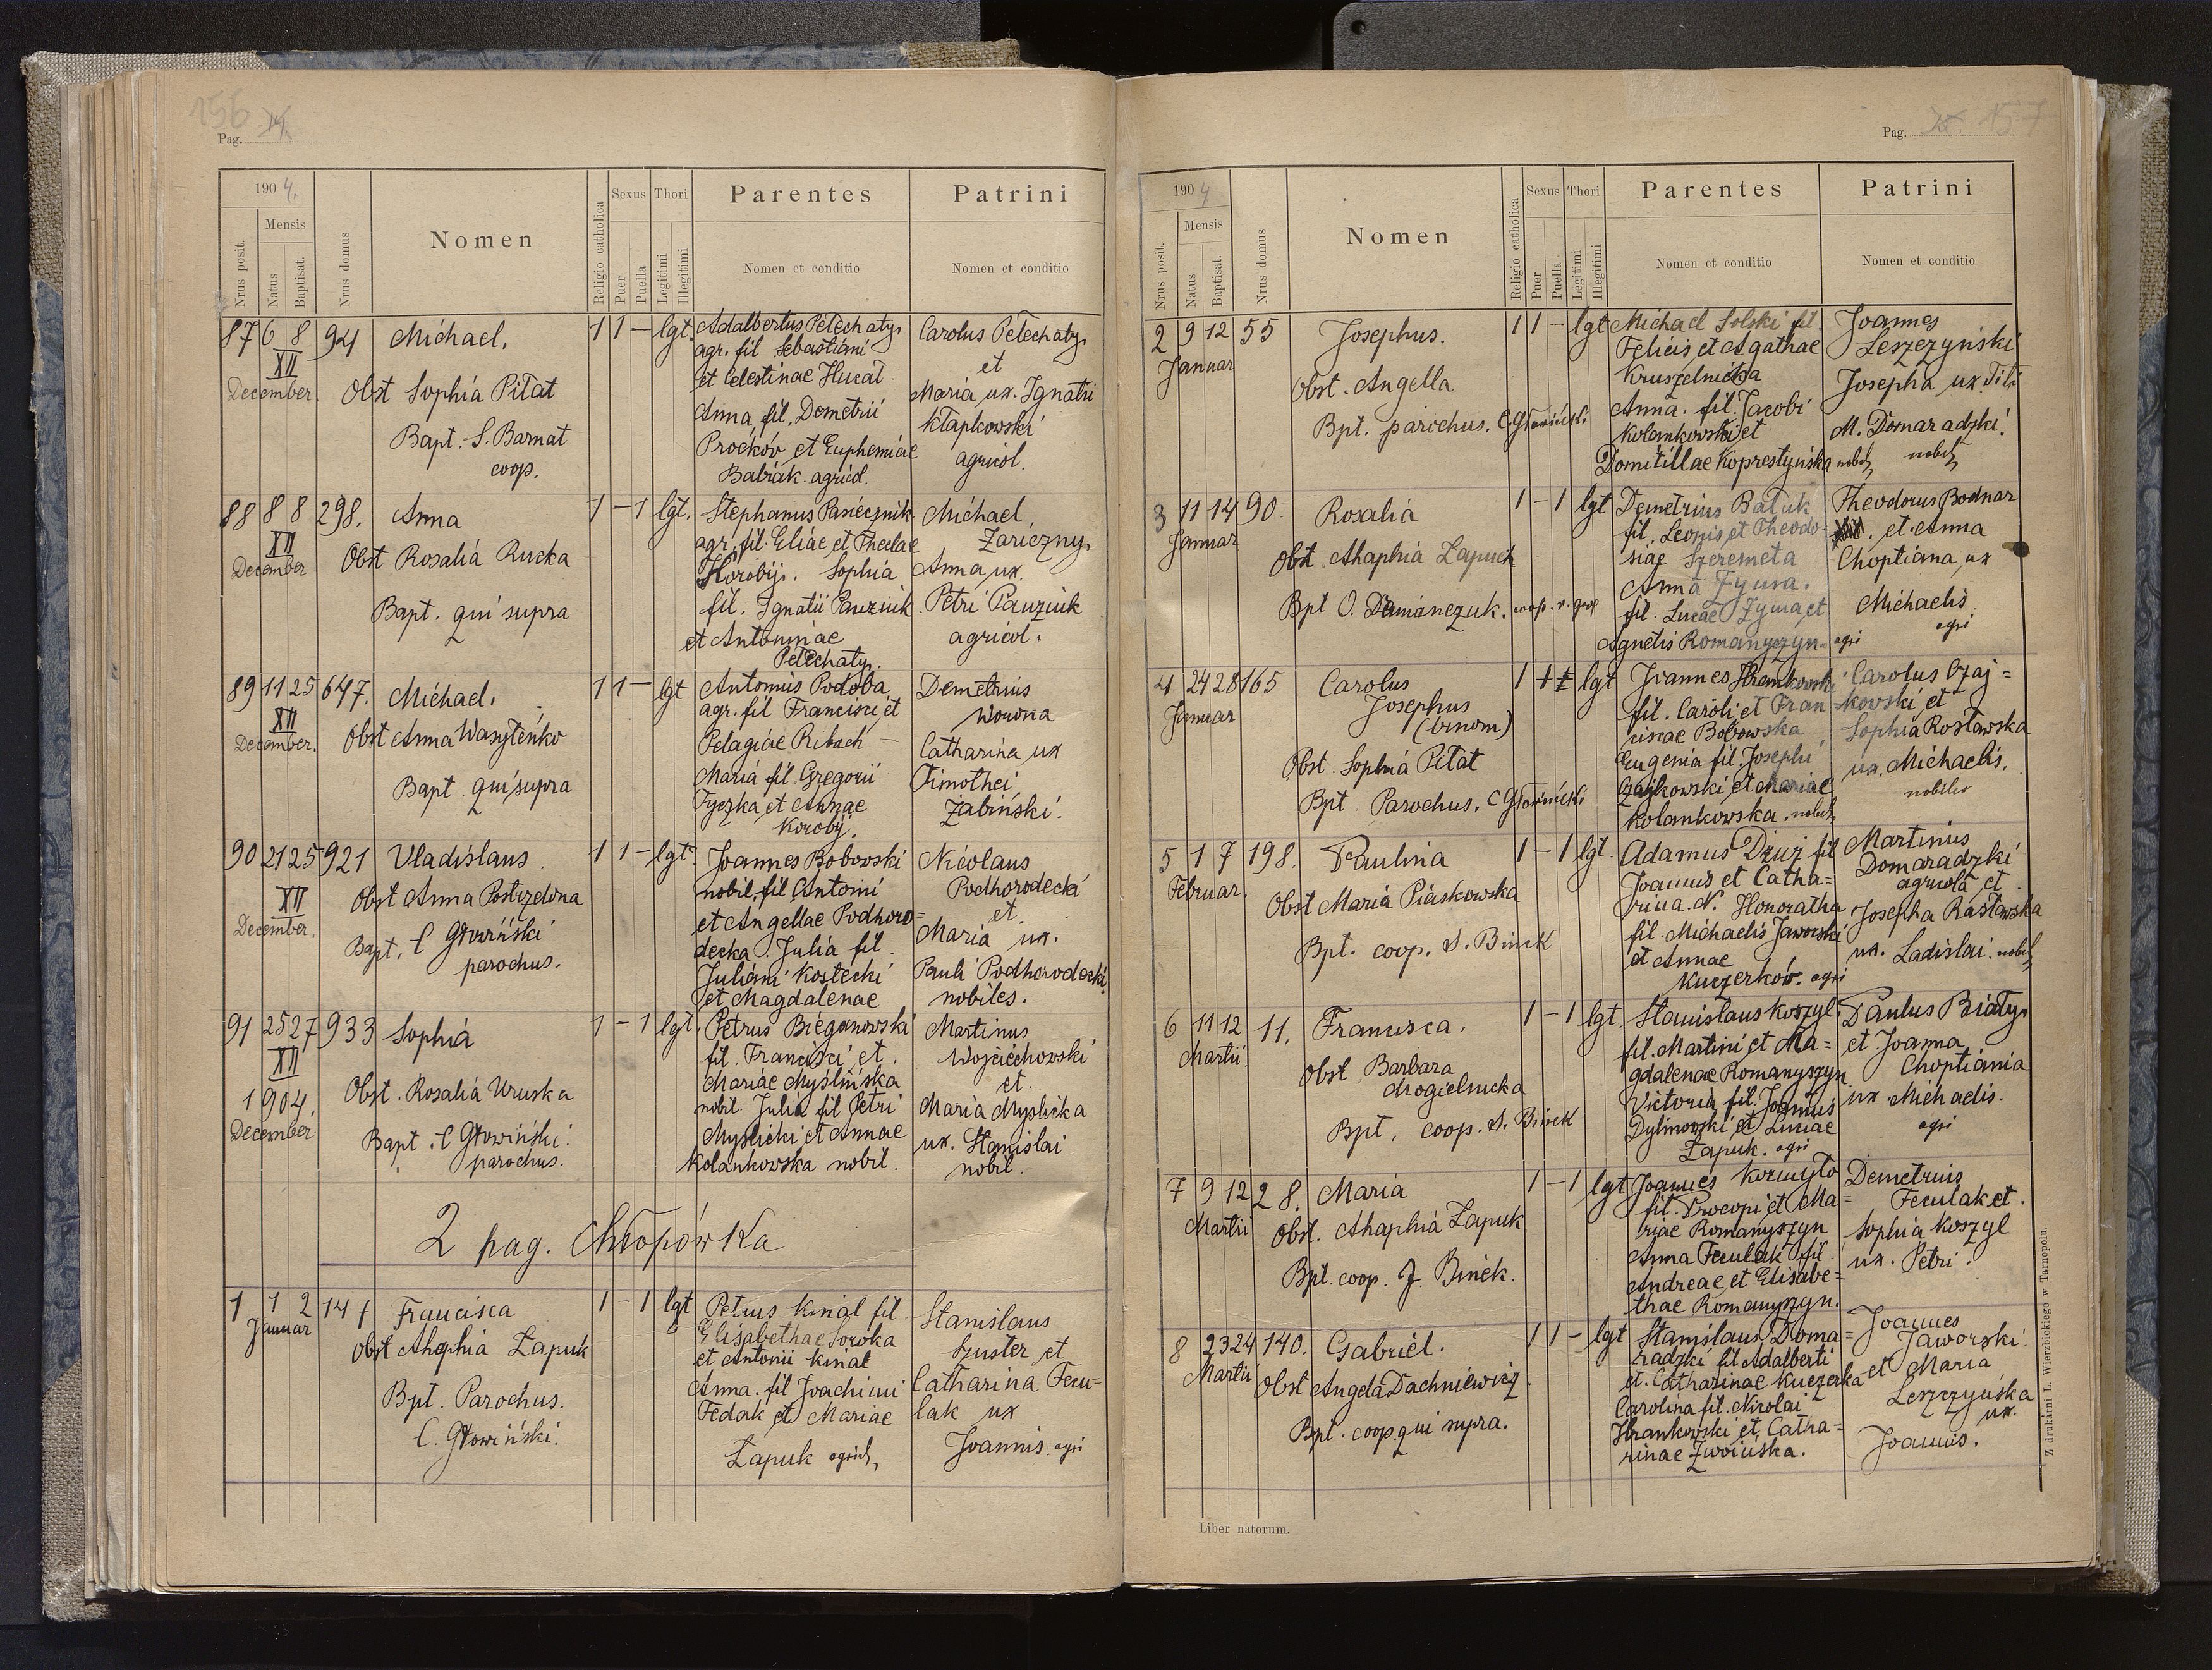 156
Pag.
1904.
Nrus posit.
Mensis
Natus
Baptisat.
Nrus domus
Nomen
Religio catholica
Sexus
Puer
Puella
Thori
Legitimi
Illegitimi
Parentes
Nomen et conditio
Patrini
Nomen et conditio
87 6 8 94 Michael. 1 1 – lgt.
XII
December
Obst Sophia Piłat
Bapt. S. Barnat
coop.
Adalbertus Petechaty,
agr. fil Sebastiani
et Celestinae Hucal
Anna, fil. Demetrii
Proćków et Euphemiae
Babiak agricol.
Carolus Petechaty,
et
Maria ux. Ignatii
Kłapkowski
agricol.
88 8 8 298. Anna 1 – 1 lgt.
XII
December
Obst Rosalia Rucka
Bapt. qui supra
Stephanus Pasiecznik
agr. fil. Eliae et Theclae
Horobij. Sophia
fil. Ignatii Pauziuk
et Antoninae
Petechaty.
Michael
Zariczny,
Anna ux.
Petri Pauziuk
agricol.
89 11 25 647. Michael. 1 1 – lgt
XII
December.
Obst Anna Wasyleńko
Bapt. qui supra
Antonius Podoba
agr. fil Francisci et
Pelagiae Ribach
Maria fil. Gregorii
Tyczka et Annae
Korobij.
Demetrius
Wowna
Catharina ux
Timothei
Żabiński.
90 21 25 921 Vladislaus. 1 1 – lgt
XII
December.
Obst Anna Postrzelona
Bapt. C Głowiński
parochus.
Joannes Bobowski
nobil. fil Antonii
et Angellae Podhoro=
decka. Julia fil.
Juliani Kostecki
et Magdalenae
Nicolaus
Podhorodecki
et
Maria ux.
Pauli Podhorodecki
nobiles.
91 25 27 933 Sophia 1 – 1 lgt.
XII
1904.
December
Obst. Rosalia Wruska
Bapt. C Głowiński.
parochus.
Petrus Bieganowski
fil. Francisci et.
Mariae Myślińska
nobil. Julia fil Petri
Myslicki et Annae
Kolankowska nobil.
Martinus
Wojciechowski
et
Maria Myslicka
ux. Stanislai
nobil.
2 pag. Chłopówka
1 1 2 147 Francisca 1 – 1 lgt
Januar
Obst Ahaphia Łapuk
Bpt. Parochus.
C. Głowiński.
Petrus Kinal fil
Elisabethae Sowka
et Antonii Kinal
Anna. fil Joachimi
Fedak et Mariae
Łapuk agricol,
Stanislaus
Szuster et
Catharina Fecu=
lak ux
Joannis. agri
157
Pag.
1904
Nrus posit.
Mensis
Natus
Baptisat.
Nrus domus
Nomen
Religio catholica
Sexus
Puer
Puella
Thori
Legitimi
Illegitimi
Parentes
Nomen et conditio
Patrini
Nomen et conditio
2 9 12 55 Josephus. 1 1 – lgt
Januar
Obst. Angella
Bpt. parochus. C. Głowiński
Michael Solski fil.
Felicis et Agathae
Kruszelnicka
Anna. fil. Jacobi
Kolankowski et
Domitillae Koprestyńska nobil,
Joannes
Leszczyński
Josepha ux Titi
M. Domaradzki.
nobil,
3 11 14 90. Rosalia 1 – 1 lgt
Januar
Obst Ahaphia Łapuch
Bpt O. Damianczuk. coop. r. gr
Demetrius Bałuk
fil. Leonis et Theodo=
siae Szeremeta
Anna Zyma.
fil. Lucae Zyma et
Agnetis Romanyczyn= agri
Theodorus Bodnar
et Anna
Choptiana, ux
Michaelis
agri
4 24 28 165 Carolus 1 1 1 lgt
Januar
Josephus
(binom)
Obst. Sophia Piłat
Bpt. Parochus. C Głowiński
Joannes Hrankowski
fil. Caroli et Fran=
ciscae Bobowska
Eugenia fil. Josephi
Czajkowski et Mariae
Kolankowska. nobil,
Carolus Czaj=
kowski et
Sophia Rosławska
ux. Michaelis.
nobiles
5 1 7 198. Paulina 1 – 1 lgt.
Februar.
Obst Maria Piaskowska
Bpt. coop. S. Binek
Adamus Dziuj fil
Joannis et Catha=
rina. N. Honoratha
fil. Michaelis Jaworski
et Annae
Kuczerków. agri
Martinus
Domaradzki
agricola et
Josepha Rasławska
ux. Ladislai. nobil,
6 11 12 11. Francisca. 1 – 1 lgt
Martii.
Obst Barbara
Mogielnicka
Bpt. coop. S. Binek
Stanislaus Koszyl.
fil. Martini et Ma=
gdalenae Romanyszyn
Victoria fil. Joannis
Dylinowski et Luciae
Łapuk. agri
Paulus Biały,
et Joanna
Choptiania
ux Michaelis.
agri
7 9 12 28. Maria 1 – 1 lgt
Martii
Obst. Ahaphia Łapuk
Bpt. coop. J. Binek.
Joannes Kormyło
fil. Procopi et Ma=
riae Romanyszyn
Anna Feculak fil.
Andreae et Elisabe=
thae Romanyszyn.
Demetrius
Feculak et.
Sophia Koszyl
ux. Petri.
8 23 24 140. Gabriel. 1 1 – lgt
Martii
Obst Angela Dachniewicz
Bpt. coop qui supra.
Stanislaus Doma=
radzki fil Adalberti
et. Catharinae Kuczerka
Carolina fil. Nicolai
Hrankowski et Catha=
rinae Zwocińska.
Joannes
Jaworski
et Maria
Leszczyńska
ux.
Joannis.
Liber natorum.
Z drukarni L. Wierzbickiego w Tarnopolu.